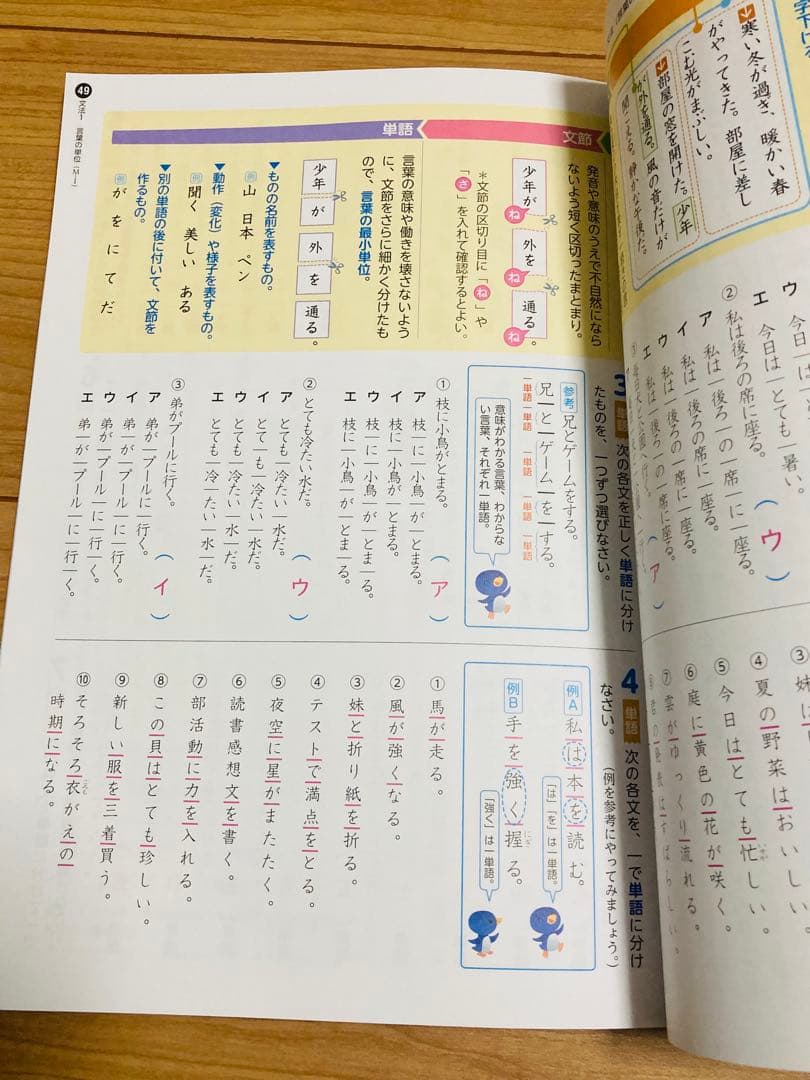 寒い冬が過ぎ、暖かい春
がやってきた。部屋に差し
こむ光がまぶしい。
部屋の窓を開けた。少年
が外を通る。風の音だけが
聞こえる。静かな午後だ。
文節
発音や意味のうえで不自然になら
ないよう短く区切ったまとまり。
少年が
ね
外を
ね
通る。
ね
＊文節の区切り目に「ね」や
「さ」を入れて確認するとよい。
単語
言葉の意味や働きを壊さないよう
に、文節をさらに細かく分けたも
ので、言葉の最小単位。
少年
が
外
を
通る
。
▼ものの名前を表すもの。
例 山 日本 ペン
▼動作（変化）や様子を表すもの。
例 聞く 美しい ある
▼別の単語の後に付いて、文節を
作るもの。
例 が を に て だ
49
文法1 言葉の単位
ウ 今日
エ 今日は｜とても｜暑い。
② 私は後ろの席に座る。
（ウ）
ア 私は
イ 私は
ウ 私は
エ 私は
（ア）
3
単語
次の各文を正しく単語に分け
たものを、一つずつ選びなさい。
参考
兄とゲームをする。
兄｜と｜ゲーム｜を｜する。
一単語
一単語
一単語
一単語
一単語
意味がわかる言葉、わからな
い言葉、それぞれ一単語。
① 枝に小鳥がとまる。
（ア）
ア 枝｜に｜小鳥｜が｜とまる。
イ 枝に｜小鳥が｜とまる。
ウ 枝に｜小鳥｜が｜とま｜る。
エ 枝｜に｜小鳥｜が｜とま｜る。
② とても冷たい水だ。
（ウ）
ア とても｜冷たい｜水だ。
イ とて｜も｜冷たい｜水だ。
ウ とても｜冷たい｜水｜だ。
エ とても｜冷｜たい｜水｜だ。
③ 弟がプールに行く。
（イ）
ア 弟が｜プールに｜行く。
イ 弟｜が｜プール｜に｜行く。
ウ 弟が｜プール｜に｜行く。
エ 弟｜が｜プール｜に｜行｜く。
③ 妹は
④ 夏の野菜はおいしい。
⑤ 今日はとても忙しい。
⑥ 庭に黄色の花が咲く。
⑦ 雲がゆっくり流れる。
4
単語
次の各文を、｜で単語に分け
なさい。（例を参考にやってみましょう。）
例A
私は本を読む。
「は」「を」は一単語。
例B
手を強く握る。
にぎ
「強く」は一単語。
① 馬が走る。
② 風が強くなる。
③ 妹と折り紙を折る。
④ テストで満点をとる。
⑤ 夜空に星がまたたく。
⑥ 読書感想文を書く。
⑦ 部活動に力を入れる。
⑧ この貝はとても珍しい。
⑨ 新しい服を三着買う。
⑩ そろそろ衣がえの
時期になる。